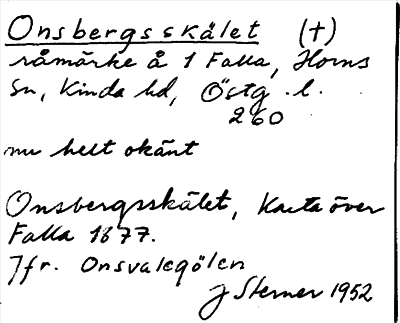 Onsbergsskålet (+)
råmärke å 1 Falla, Horns
sn, Kinda hd, Östg. l.
260
nu helt okänt
Onsbergsskålet, Karta över
Falla 1877.
Jfr. Onsvalegölen
J Sterner 1952